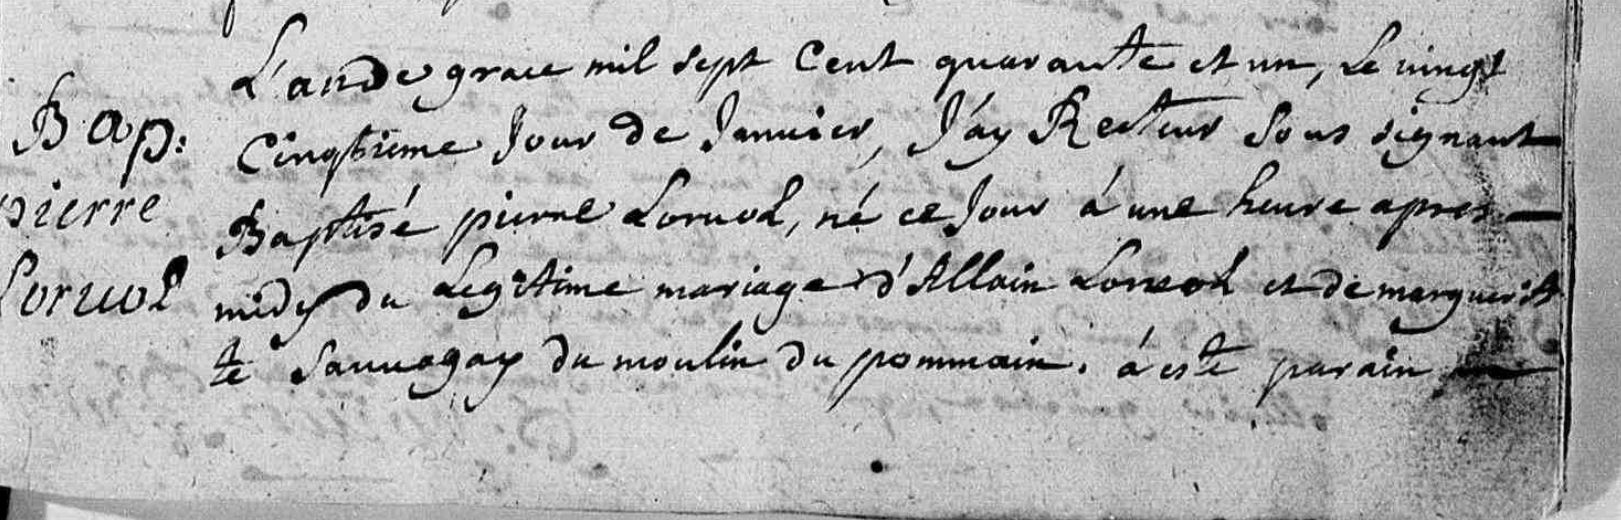 L'an de grace mil sept Cent quarante et un, Le vingt
Bap: Cinqtieme Jour de Janvier, J'ay Recteur Sous signant
pierre Baptisé pierre Lorvol, né ce Jour à une heure apres
Lorvol midy du Legitime mariage d'Allain Lorvol et de margueritt
te Sauvagay du moulin du pommain. à esté parain